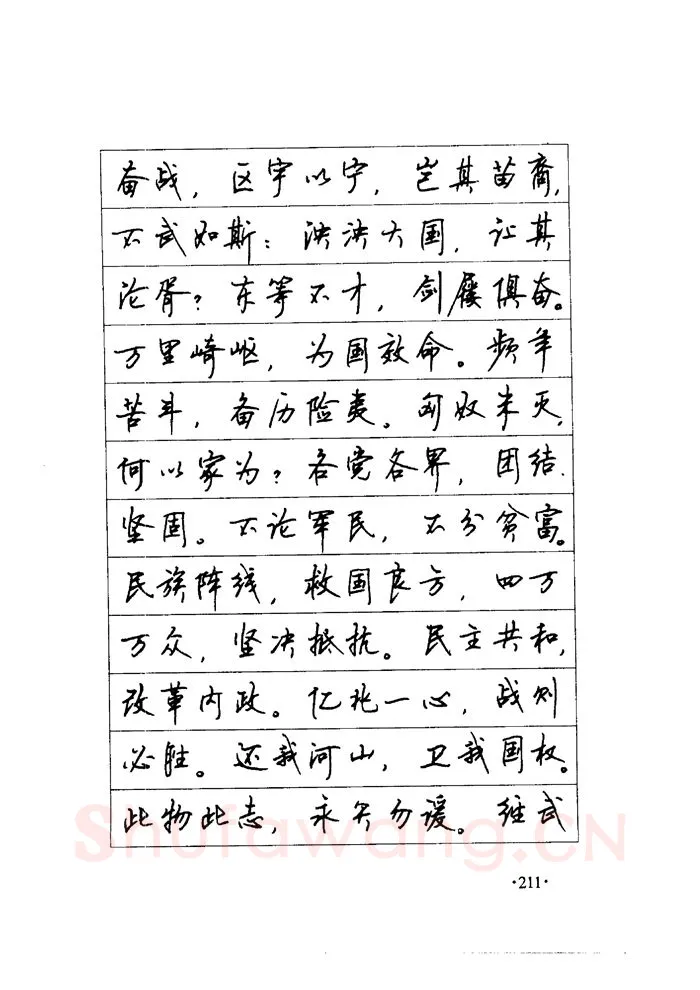 奋战，区宇以宁，岂其苗裔，
不武如斯：泱泱大国，让其
沦胥？东等不才，剑屦俱奋。
万里崎岖，为国效命。频年
苦斗，备历险夷。匈奴未灭，
何以家为？各党各界，团结
坚固。不论军民，不分贫富。
民族阵线，救国良方，四万
万众，坚决抵抗。民主共和，
改革内政。亿兆一心，战则
必胜。还我河山，卫我国权。
此物此志，永矢勿谖。经武
Shufawang.CN
·211·